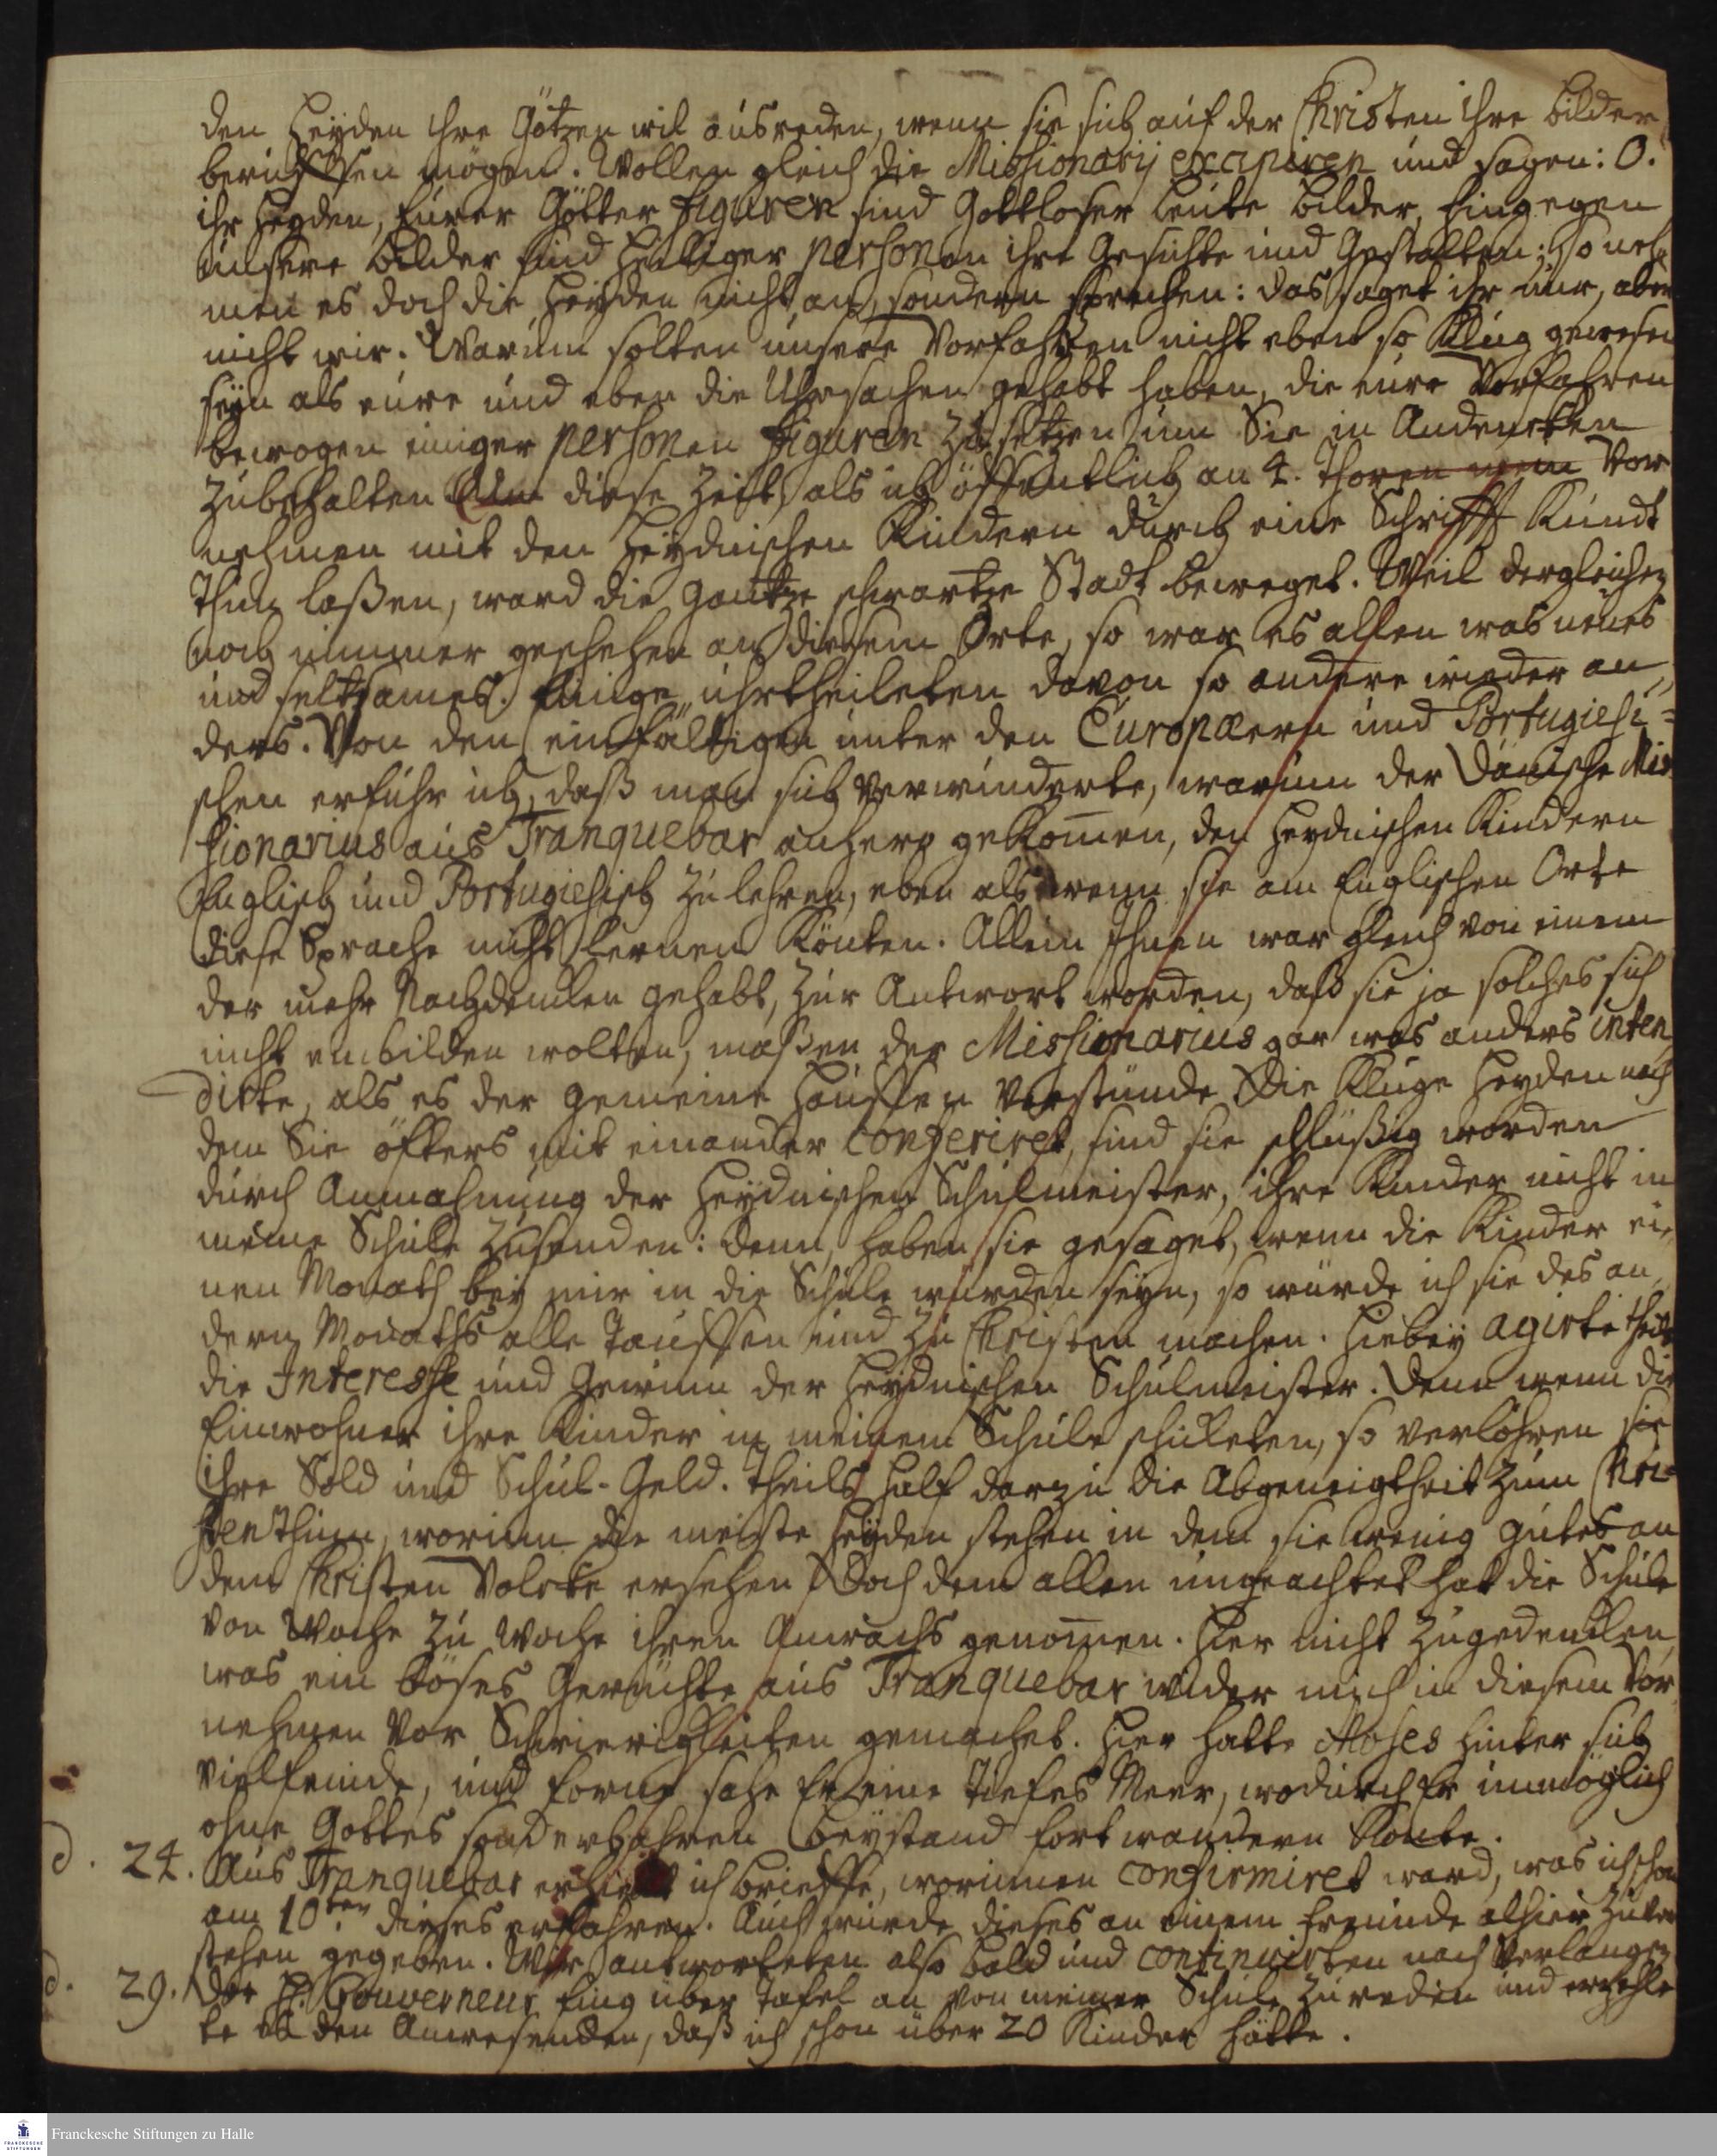 den Heyden ihre Götzen wil ausreden, wenn sie sich auf der Christen ihre bilder
beruffen mögen. Wollen gleich die Missionarij excipiren und sagen: O.
ihr Heyden, Eurer Götter Figuren sind Gottloser Leute bilder, hingegen
unsere bilder sind heiliger Personen ihre Gesichte und Gestalten; so neh
men es doch die Heyden nicht an, sondern sprechen: das saget ihr nur, aber
nicht wir. Warum solten unsere Vorfahren nicht eben so klug gewesen
seyn als eure und eben die Uhrsachen gehabt haben, die eure Vorfahren
bewogen einiger Personen Figuren zu setzen um Sie in Andencken
zubehalten Um diese Zeit, als ich öffentlich an 4. Thoren mein Vor
nehmen mit den Heydnischen Kindern durch eine Schrifft Kundt
thun laßen, ward die gantze schwartze Stadt beweget. Weil dergleichen
noch nimmer geschehen an diesem Orte, so war es allen was neues
und seltsames. Einige uhrtheileten davon so andere wieder an,,
ders. Von den einfältigen unter den Europæern und Portugiesi=
schen erfuhr ich, daß man sich verwunderte, warum der Dänische Mis
sionarius aus Tranquebar anhero gekom̅en, den Heydnischen Kindern
Englisch und Portugiesisch zu lehren, eben als wenn sie am Englischen Orte
diese Sprache nicht lernen könten. Allein Ihnen war gleich von einem
der mehr Nachdencken gehabt, zur Antwort worden, daß sie ja solches sich
nicht einbilden wolten, maßen der Missionarius gar was anders inten
dirte, als es der gemeine Hauffen verstünde Die kluge Heyden nach
dem Sie öfters mit einander conferiret, sind sie schlüßig worden
durch Anmahnung der Heydnischen Schulmeister, ihre Kinder nicht in
meine Schule zusenden: denn, haben sie gesaget, wenn die Kinder ei,
nen Monath bey mir in die Schule wurden seyn, so würde ich sie des an,
dern Monaths alle tauffen und zu Christen machen. Hiebey agirte theils
die Interesse und Gewinn der Heydnischen Schulmeister. Denn wenn die
Einwohner ihre Kinder in meinem Schule schicketen, so verlohren sie
ihre Sold und Schul-Geld. Theils half darzu die Abgeneigtheit zum Chri=
stenthum, worinn die meiste Heyden stehen in dem sie wenig gutes an
dem Christen Volcke ersehen Doch dem allen ungeachtet hat die Schule
von Woche zu Woche ihren Anwachs genom̅en. Hier nicht zugedencken,
was ein böses Gerüchte aus Tranquebar wider mich in diesem Vor
nehmen vor Schwierigkeiten gemachet. Hier hatte Moses hinter sich
viel feinde, und forne sahe Er eine tiefes Meer, wodurch Er unmöglich
ohne Gottes sonderbahren Beystand fort wandern konte.
d. 24. Aus Tranquebar erhielt ich brieffe, worinnen confirmiret ward, was ich schon
am 10ten dieses erfahren. Auch wurde dieses an einem freunde alhier zuver
stehen gegeben. Wir antworteten also bald und continuirten nach Verlangen
d. 29. Der H. Gouverneur fing über Tafel an von meiner Schule zureden und erzehle
te es den Anwesenden, daß ich schon über 20 Kinder hätte.
Franckesche Stiftungen zu Halle